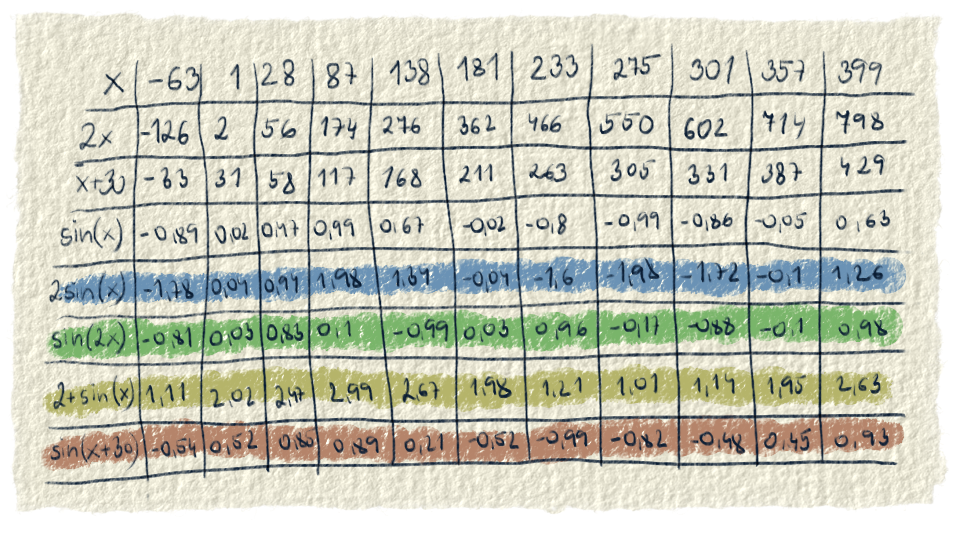 x -63 1 28 87 138 181 233 275 301 357 399
2x -126 2 56 174 276 362 466 550 602 714 798
x+30 -33 31 58 117 168 211 263 305 331 387 429
sin(x) -0,89 0,02 0,47 0,99 0,67 -0,02 -0,8 -0,99 -0,86 -0,05 0,63
2sin(x) -1,78 0,04 0,94 1,98 1,34 -0,04 -1,6 -1,98 -1,72 -0,1 1,26
sin(2x) -0,81 0,03 0,83 0,1 -0,99 0,03 0,96 -0,17 -0,88 -0,1 0,98
2+sin(x) 1,11 2,02 2,47 2,99 2,67 1,98 1,21 1,01 1,14 1,95 2,63
sin(x+30) -0,54 0,52 0,80 0,89 0,21 -0,52 -0,99 -0,82 -0,48 0,45 0,93